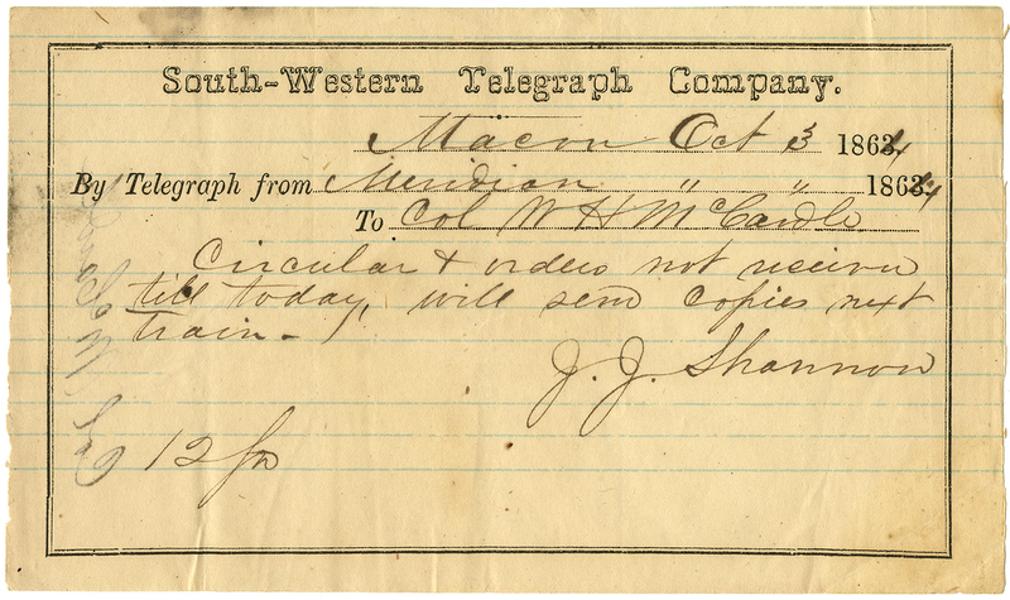 South-Western Telegraph Company.
Macon Oct 3 1864
By Telegraph from Meridian " " 1864
To Col W H McCardle
Circular & orders not receivd
till today, will send copies next
train -
J. J. Shannon
12